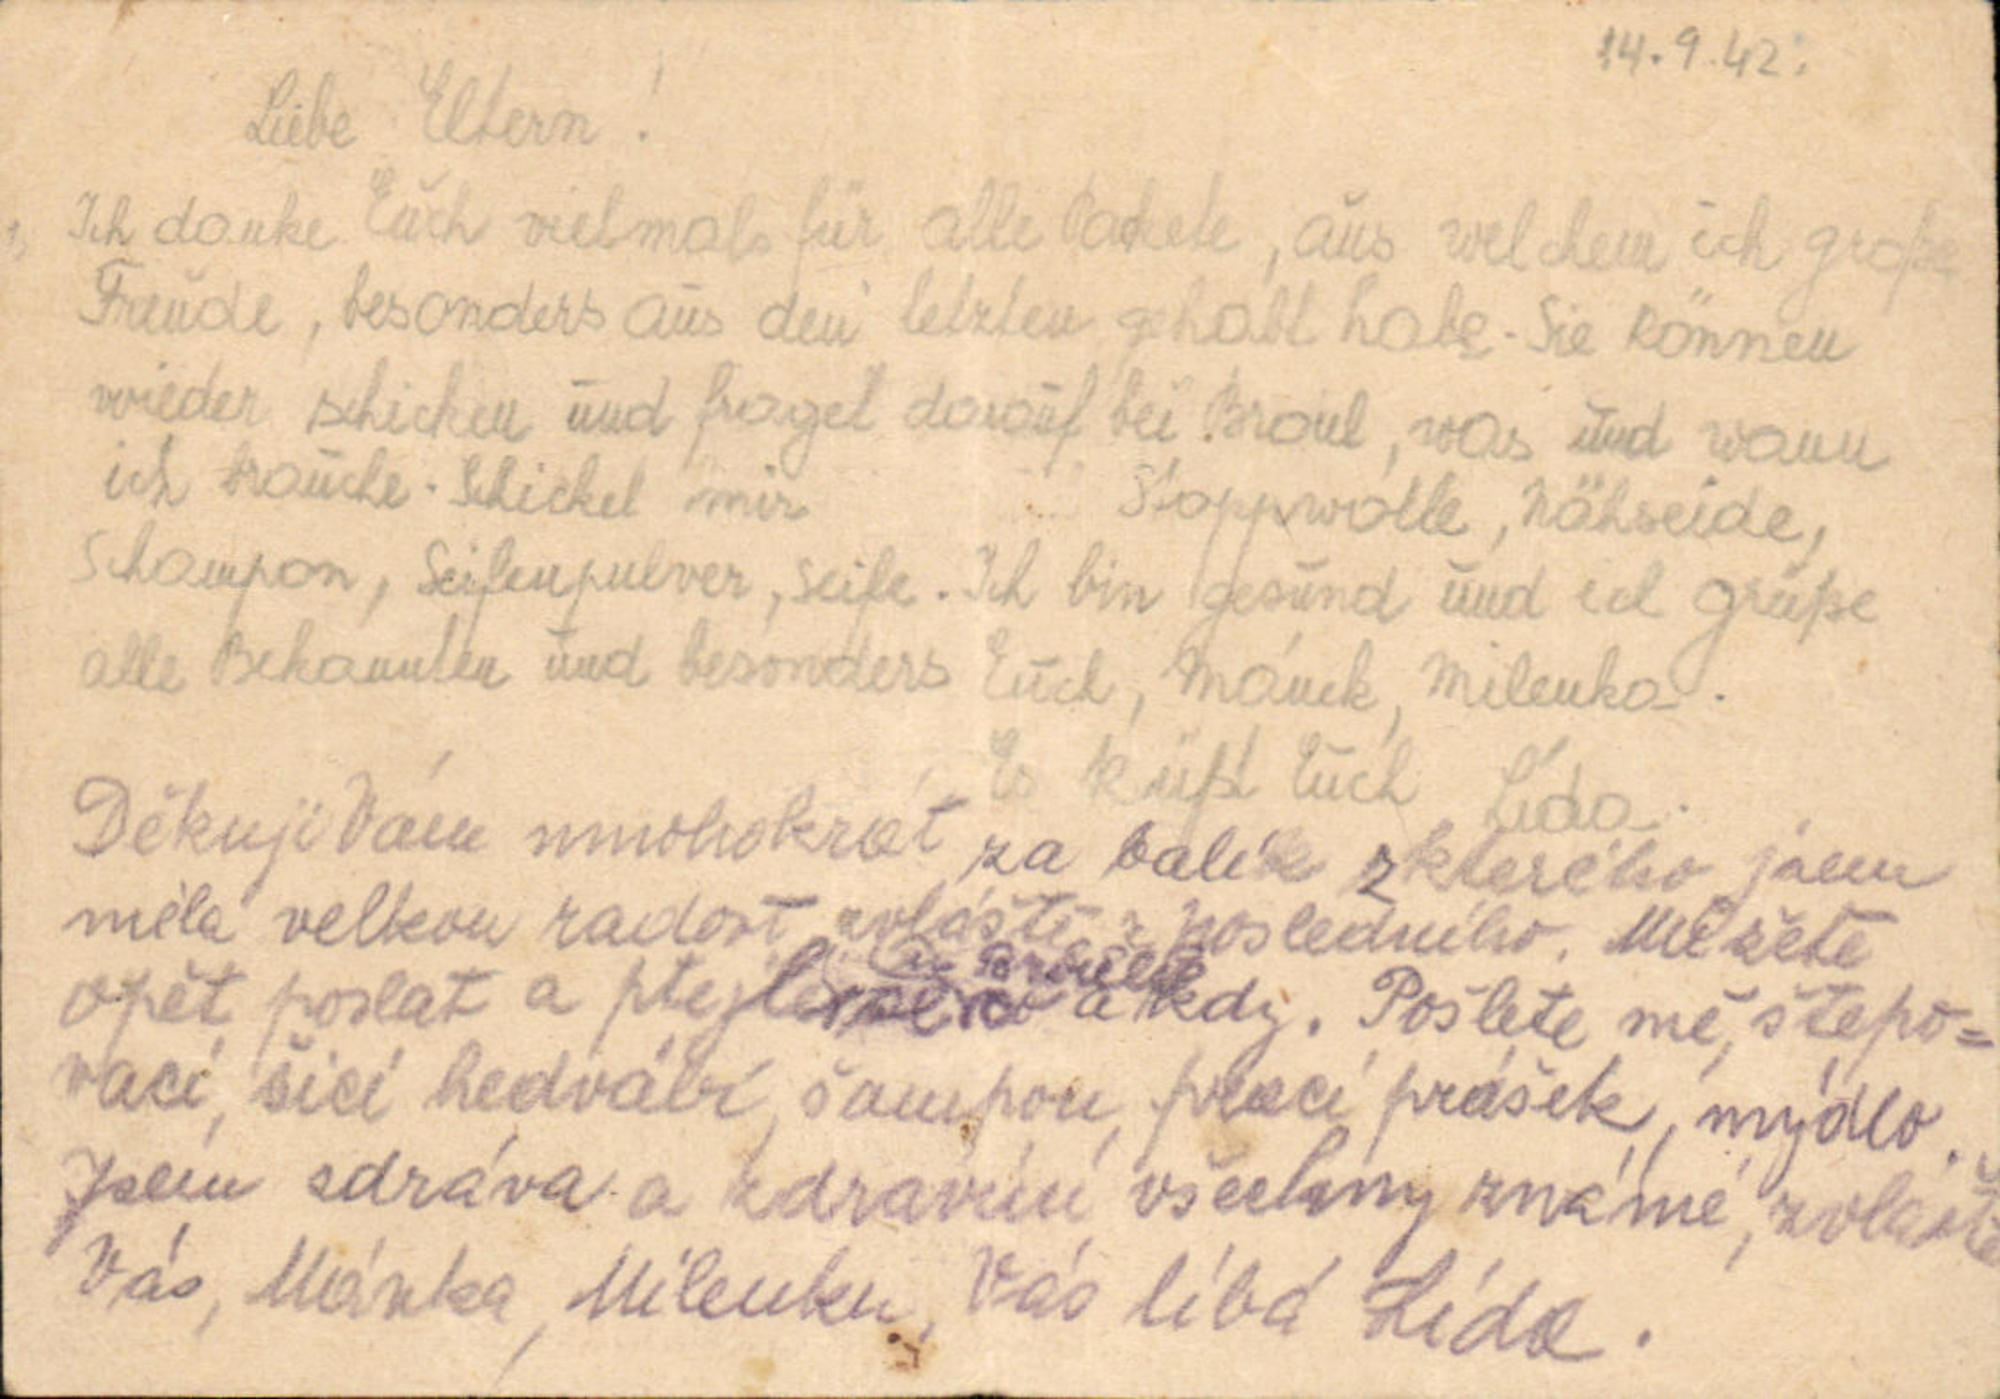 14.9.42.
Liebe Eltern!
Ich danke Euch vielmals für alle Pakete, aus welchem ich große
Freude, besonders aus den letzten gehabt habe. Sie können
wieder schicken und fraget darauf bei Braul, was und wann
ich brauche. Schicket mir Stoppwolle, Nähseide,
Schampon, Seifenpulver, Seife. Ich bin gesund und ich grüße
alle Bekannten und besonders Euch, Mánek, Milenka.
Es küßt Euch Lída.
Děkuji Vám mnohokrát za balík z kterého jsem
měla velkou radost zvláště z posledního. Můžete
opět poslat a ptejte a kdy. Pošlete mě, štepo=
vací, šicí hedvábí, šampon, prací prášek, mýdlo.
Jsem zdráva a zdravím všechny známé, zvláště
Vás, Mánka, Milenku, Vás líbá Lída.